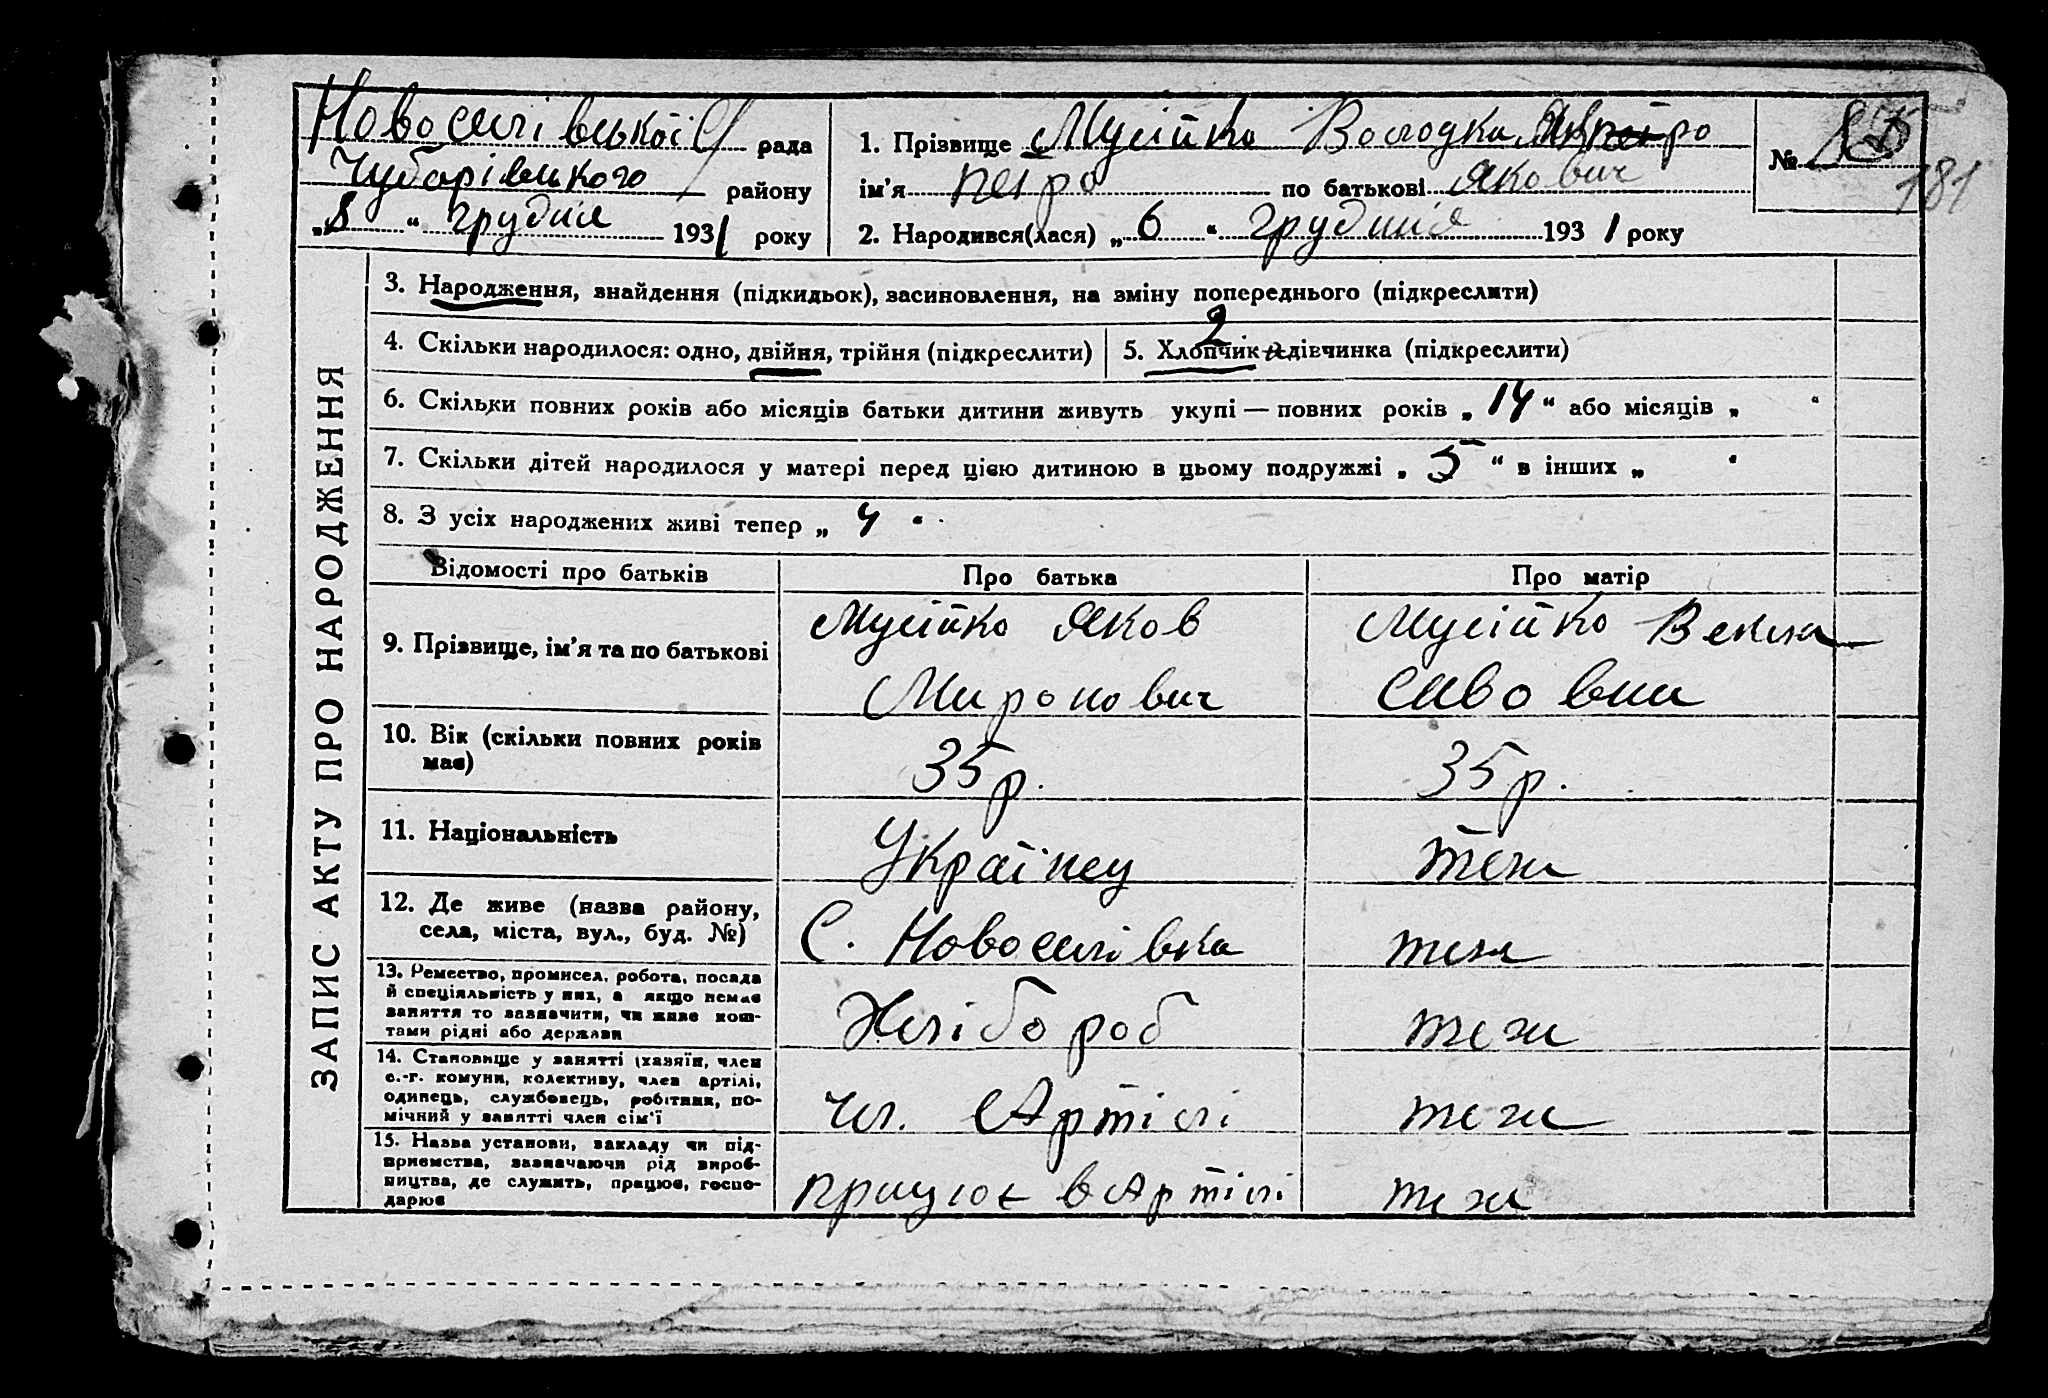 Новоселівської С/ рада
Чубарівського району
„8“ грудня 1931 року
1. Прізвище Мусійко Володка
ім’я Петро по батькові Якович
2. Народився(лася) „6“ грудння 1931 року
№
181
ЗАПИС АКТУ ПРО НАРОДЖЕННЯ
3. Народження, знайдення (підкидьок), засиновлення, на зміну попереднього (підкреслити)
4. Скільки народилося: одно, двійня, трійня (підкреслити)
2
5. Хлопчик и дівчинка (підкреслити)
6. Скільки повних років або місяців батьки дитини живуть укупі — повних років „14“ або місяців „ “
7. Скільки дітей народилося у матері перед цією дитиною в цьому подружжі „5“ в інших „ “
8. З усіх народжених живі тепер „4“
Відомості про батьків Про батька Про матір
9. Прізвище, ім’я та по батькові
Мусійко Яков
Миронович
Мусійко Векла
Савовна
10. Вік (скільки повних років має)
35 р. 35 р.
11. Національність
Українец теж
12. Де живе (назва району,
села, міста, вул., буд. №)
С. Новоселівка теж
13. Ремество, промисел, робота, посада
й спеціяльність у них, а якщо немає
заняття то зазначити, чи живе кош-
тами рідні або держави
Хлібороб теж
14. Становище у занятті (хазяїн, член
с.-г. комуни, колективу, член артілі,
одинець, службовець, робітник, по-
мічний у занятті член сім’ї
чл. Артілі теж
15. Назва установи, закладу чи під-
приємства, зазначаючи рід вироб-
ництва, де служить, працює, госпо-
дарює
працює в Артілі теж